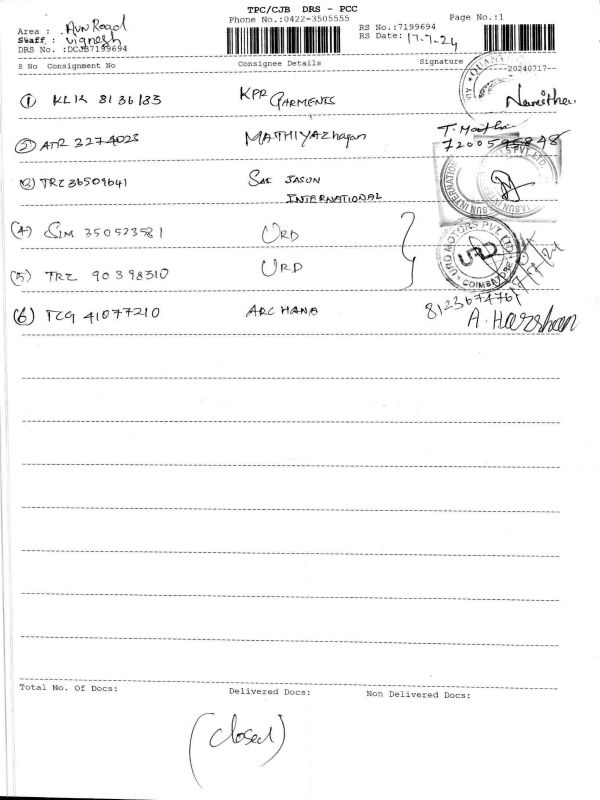 TPC/CJB DRS - PCC
Phone No.:0422-3505555
Page No.:1
Area : Avn Road
RS No.:7199694
Staff : Vignesh
RS Date: 17-7-24
DRS No. :DCJB7199694
S No Consignment No
Consignee Details
Signature
--20240717--
(1) KLK 8136183 KPR GARMENTS Namitha
(2) ATR 3274025 MATHIYAzhagan T.
(3) TRZ 36509641 SAI JASON
INTERNATIONAL
(4) SLM 350523581 URD
URD MOTORS PVT LTD
URD
COIMBATORE
17/7/24
(5) TRZ 90398310 URD
8123674761
(6) TCG 41077210 ARCHANA A. Harshan
Total No. Of Docs:
Delivered Docs:
Non Delivered Docs:
(closed)